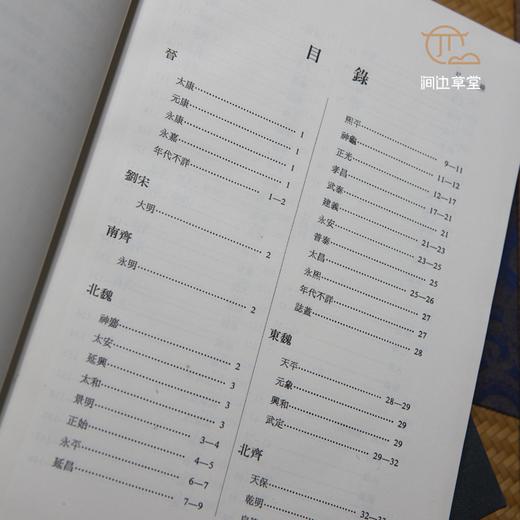 澗边草堂
目錄
晉
太康……1
元康……1
永康……1
永嘉……1
年代不詳……1—2
劉宋
大明……2
南齊
永明……2
北魏
神䴥……2
太安……3
延興……3
太和……3
景明……3—4
正始……4—5
永平……6—7
延昌……7—9
熙平……9—11
神龜……11—12
正光……12—17
孝昌……17—21
武泰……21
建義……21—23
永安……23—25
普泰……25
太昌……25—26
永熙……27
年代不詳……27
誌蓋……28
東魏
天平……28—29
元象……29
興和……29
武定……29—32
北齊
天保……
乾明……